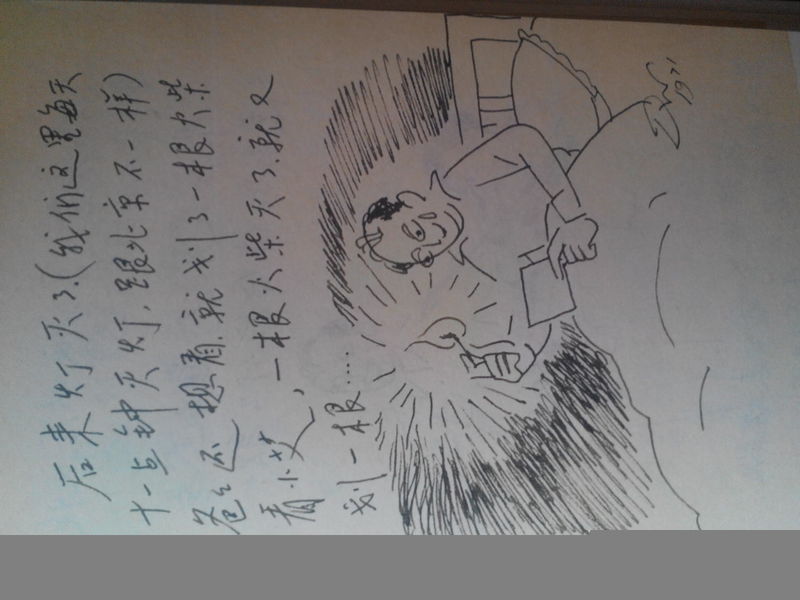 后来灯灭了.(我们这里每天
十一点钟灭灯.跟北京不一样)
爸爸还想看.就划了一根火柴
看小艾,一根火柴灭了.就又
划一根……
1971